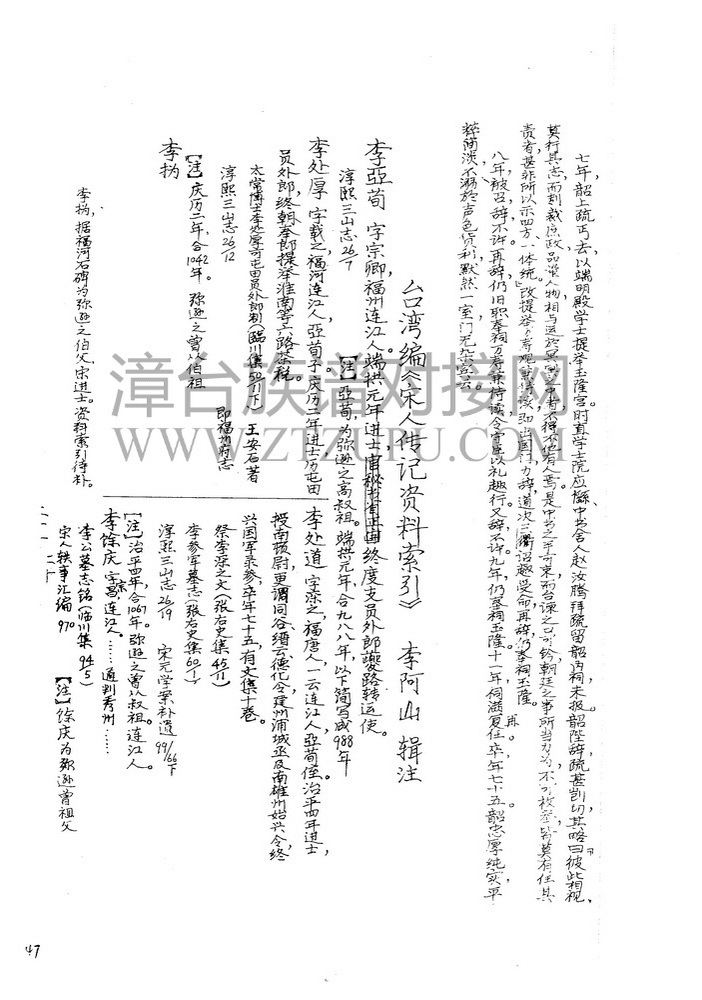 七年,韶上疏丐去,以端明殿学士提举玉隆宫。时直学士院应㒡,中书舍人赵汝腾拜疏留韶内祠,未报。韶陛辞,疏甚剀切,其略曰:彼此相视,
莫行其志,而刻裁庶政,品量人物,相与运于冥冥之中者,不得不他有人焉。是中书之手可束,而台谏之口可钤,朝廷之事所当力为,不可枚举,皆莫有任其
责者,甚非所以示四方,一体统。改提举万寿观兼侍读,
八年,被召,辞,不许。再辞,仍旧职奉祠万寿兼侍读,令守臣以礼趣行。又辞,不许。九年,仍奉祠玉隆。十一年,祠满,复任。卒,年七十五。韶忠厚纯实,平
粹简淡,不溺於声色货利,默然一室,门无杂宾云。
台湾编《宋人传记资料索引》 李阿山 辑注
李亞荀 字宗卿,福州连江人。端拱元年进士,官秘书省正字,终度支员外郎夔路转运使。
淳熙三山志26/7
【注】亞荀,为弥逊之高叔祖。端拱元年,合九八八年,以下简写成988年
李处厚 字载之,福河连江人,亞荀子,庆历二年进士,历屯田
员外郎,终朝奉郎提举淮南等六路茶税。
太常博士李处厚可屯田员外郎制(临川集50/11下) 王安石著
淳熙三山志26/12 即福州府志
【注】庆历二年,合1042年。 弥逊之曾从伯祖
李㧑
李㧑,据福河石碑为弥逊之伯父,宋进士。资料索引待补。
李处道 字深之,福唐人,一云连江人,亞荀侄。治平四年进士,
授南顿尉,更谓同谷缙云德化令,建州浦城丞及南雄州始兴令,终
兴国军录参,卒年七十五,有文集十卷。
祭李深之文(张右史集45/11)
李参军墓志(张右史集60/1)
淳熙三山志26/19 宋元学案补遗99/66下
【注】治平四年,合1067年。弥逊之曾从叔祖。连江人。
李馀庆 字昌宗,连江人。……通判秀州……
李公墓志铭(临川集94/5)
宋人轶事汇编970 【注】馀庆为弥逊曾祖父
47
漳台族谱对接网
WWW.ZTZUPU.COM